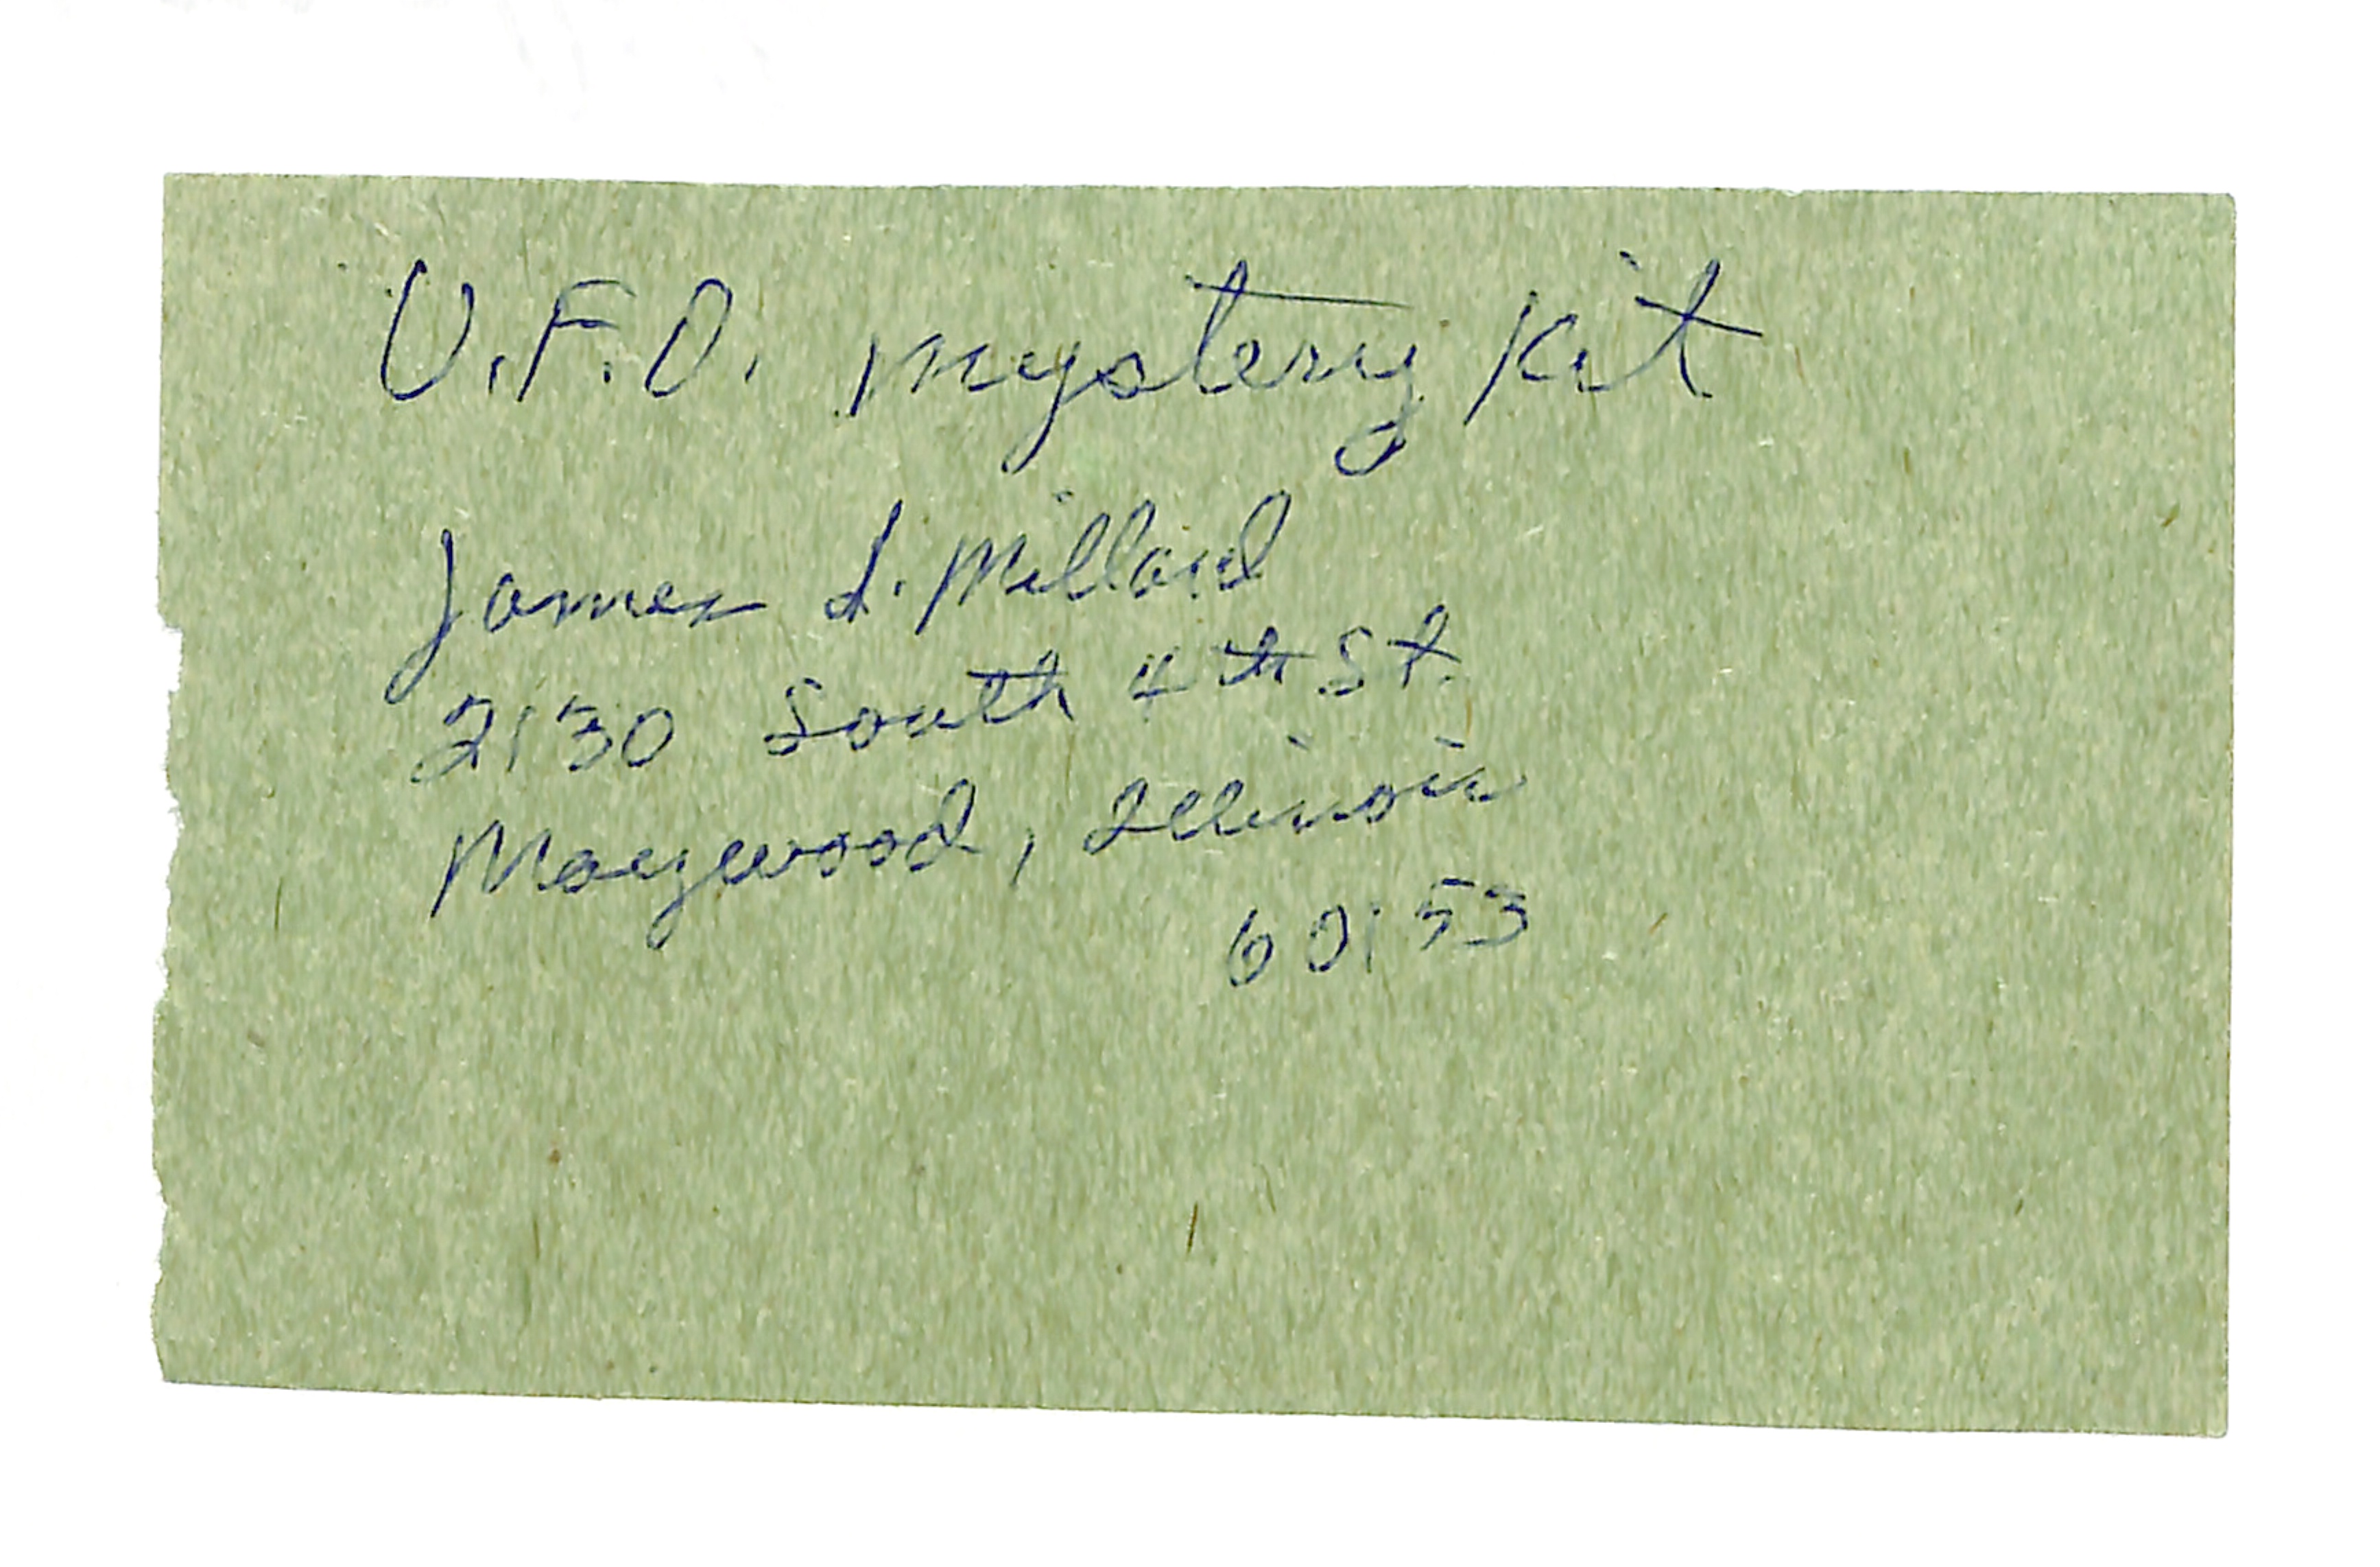 U.F.O. mystery Kit
James L. Millard
2130 South 4th St.
Maywood, Illinois
60153